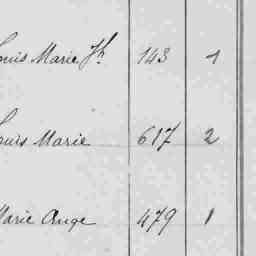 ouis Marie Jh 143 1
ouis Marie 617 2
Marie Ange 479 1